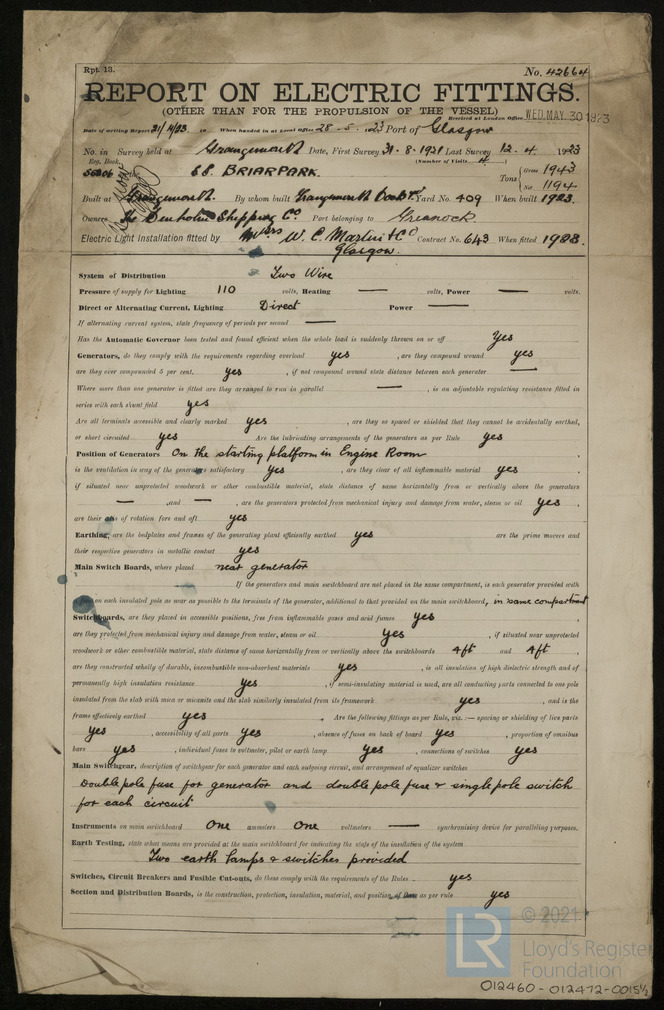 Rpt. 13.
No. 42664
REPORT ON ELECTRIC FITTINGS.
(OTHER THAN FOR THE PROPULSION OF THE VESSEL)
Received at London Office WED. MAY. 30 1923
Date of writing Report 21/4/23 to When handed in at Local Office 28-5-23 Port of Glasgow
No. in Survey held at Grangemouth Date, First Survey 31-8-1921 Last Survey 12.4.1923
Reg. Book. (Number of Visits 4)
55206 SS. BRIARPARK. Tons { Gross 1943
Net 1194
Built at Grangemouth. By whom built Grangemouth Yard No. 409 When built 1923.
Owners The Denholm Shipping Co Port belonging to Greenock
Electric Light Installation fitted by Messrs W. C. Martin & Co Contract No. 643 When fitted 1923.
Glasgow.
System of Distribution Two Wire
Pressure of supply for Lighting 110 volts, Heating — volts, Power — volts.
Direct or Alternating Current, Lighting Direct Power —
If alternating current system, state frequency of periods per second —
Has the Automatic Governor been tested and found efficient when the whole load is suddenly thrown on or off Yes
Generators, do they comply with the requirements regarding overload yes , are they compound wound yes
are they over compounded 5 per cent. yes , if not compound wound state distance between each generator —
Where more than one generator is fitted are they arranged to run in parallel — , is an adjustable regulating resistance fitted in
series with each shunt field yes
Are all terminals accessible and clearly marked yes , are they so spaced or shielded that they cannot be accidentally earthed,
or short circuited yes Are the lubricating arrangements of the generators as per Rule yes
Position of Generators On the starting platform in Engine Room
is the ventilation in way of the generators satisfactory yes , are they clear of all inflammable material yes
if situated near unprotected woodwork or other combustible material, state distance of same horizontally from or vertically above the generators
— and — are the generators protected from mechanical injury and damage from water, steam or oil yes
are their axis of rotation fore and aft yes
Earthing, are the bedplates and frames of the generating plant efficiently earthed yes are the prime movers and
their respective generators in metallic contact yes
Main Switch Boards, where placed near generator
If the generators and main switchboard are not placed in the same compartment, is each generator provided with
on each insulated pole as near as possible to the terminals of the generator, additional to that provided on the main switchboard, in same compartment
Switchboards, are they placed in accessible positions, free from inflammable gases and acid fumes yes
are they protected from mechanical injury and damage from water, steam or oil yes , if situated near unprotected
woodwork or other combustible material, state distance of same horizontally from or vertically above the switchboards 4ft and 4ft.
are they constructed wholly of durable, incombustible non-absorbent materials yes , is all insulation of high dielectric strength and of
permanently high insulation resistance yes , if semi-insulating material is used, are all conducting parts connected to one pole
insulated from the slab with mica or micanite and the slab similarly insulated from its framework yes , and is the
frame effectively earthed yes . Are the following fittings as per Rule, viz.:— spacing or shielding of live parts
yes , accessibility of all parts yes , absence of fuses on back of board yes , proportion of omnibus
bars yes , individual fuses to voltmeter, pilot or earth lamp yes , connections of switches yes
Main Switchgear, description of switchgear for each generator and each outgoing circuit, and arrangement of equalizer switches
Double pole fuse for generator and double pole fuse & single pole switch
for each circuit
Instruments on main switchboard One ammeters One voltmeters — synchronising device for paralleling purposes.
Earth Testing, state what means are provided at the main switchboard for indicating the state of the insulation of the system
Two earth lamps & switches provided
Switches, Circuit Breakers and Fusible Cut-outs, do these comply with the requirements of the Rules yes
Section and Distribution Boards, is the construction, protection, insulation, material, and position of them as per rule yes
© 2021
LR Lloyd's Register
Foundation
012460-012472-0015½